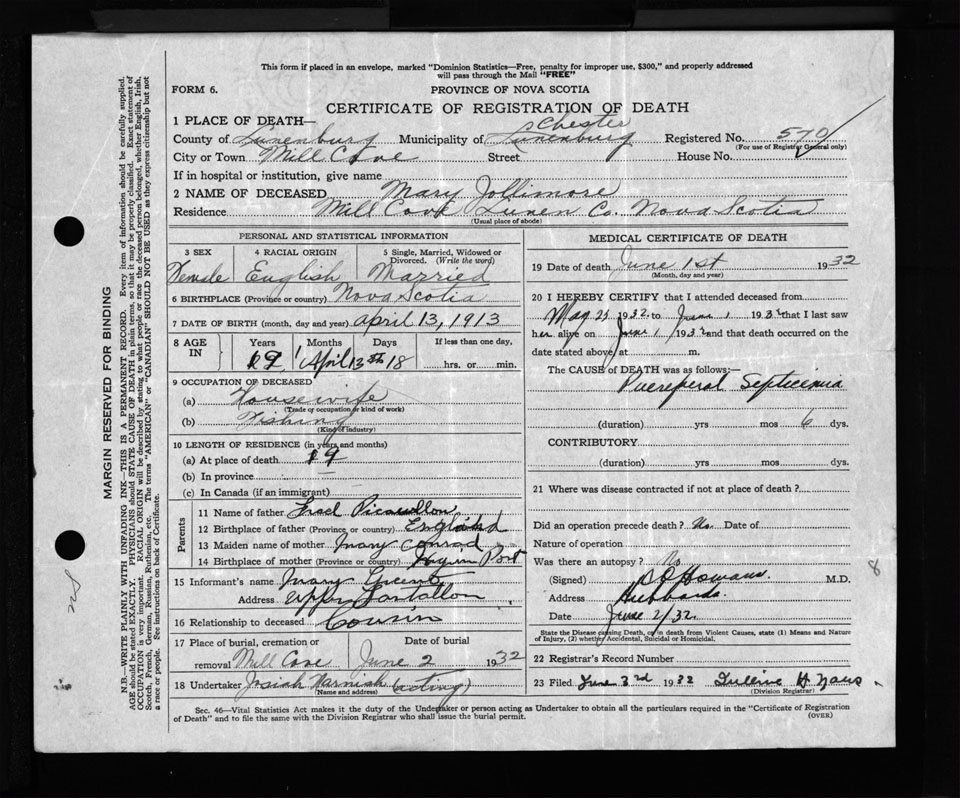 This form if placed in an envelope, marked "Dominion Statistics—Free, penalty for improper use, $300," and properly addressed
will pass through the Mail "FREE"
FORM 6. PROVINCE OF NOVA SCOTIA
CERTIFICATE OF REGISTRATION OF DEATH
1 PLACE OF DEATH—
Chester
County of Lunenburg Municipality of Lunenburg Registered No. 570
(For use of Registrar General only)
City or Town Mill Cove Street House No.
If in hospital or institution, give name
2 NAME OF DECEASED Mary Jollimore
Residence Mill Cove Lunen Co. Nova Scotia
(Usual place of abode)
PERSONAL AND STATISTICAL INFORMATION
3 SEX 4 RACIAL ORIGIN 5 Single, Married, Widowed or Divorced. (Write the word)
Female English Married
6 BIRTHPLACE (Province or country) Nova Scotia
7 DATE OF BIRTH (month, day and year) April 13, 1913
8 AGE IN Years Months Days If less than one day,
19 1 April 13th 18 hrs. or min.
9 OCCUPATION OF DECEASED
(a) Housewife
(Trade or occupation or kind of work)
(b) Fishing
(Kind of industry)
10 LENGTH OF RESIDENCE (in years and months)
(a) At place of death 19
(b) In province
(c) In Canada (if an immigrant)
Parents
11 Name of father Fred
12 Birthplace of father (Province or country) England
13 Maiden name of mother Mary Conrad
14 Birthplace of mother (Province or country) Port
15 Informant's name Mary
Address Upper Tantallon
16 Relationship to deceased Cousin
17 Place of burial, cremation or removal Date of burial
Mill Cove June 2 1932
18 Undertaker Josiah Harnish (acting)
(Name and address)
MEDICAL CERTIFICATE OF DEATH
19 Date of death June 1st 1932
(Month, day and year)
20 I HEREBY CERTIFY that I attended deceased from
May 25 1932 to June 1 1932 that I last saw
her alive on June 1 1932 and that death occurred on
date stated above at m.
The CAUSE of DEATH was as follows:
Puerperal Septicemia
(duration) yrs mos 6 dys.
CONTRIBUTORY
(duration) yrs mos dys.
21 Where was disease contracted if not at place of death?
Did an operation precede death? No Date of
Nature of operation
Was there an autopsy? No
(Signed) M.D.
Address Hubbards
Date June 2/32
State the Disease causing Death, or in death from Violent Causes, state (1) Means and Nature
of Injury, (2) whether Accidental, Suicidal or Homicidal.
22 Registrar's Record Number
23 Filed June 3rd 1932
(Division Registrar)
Sec. 46—Vital Statistics Act makes it the duty of the Undertaker or person acting as Undertaker to obtain all the particulars required in the "Certificate of Registration
of Death" and to file the same with the Division Registrar who shall issue the burial permit.
(OVER)
MARGIN RESERVED FOR BINDING
N.B.—WRITE PLAINLY WITH UNFADING INK—THIS IS A PERMANENT RECORD. Every item of information should be carefully supplied.
AGE should be stated EXACTLY. PHYSICIANS should STATE CAUSE OF DEATH in plain terms, so that it may be properly classified. Exact statement of
OCCUPATION is very important. RACIAL ORIGIN will be described by stating to what people or race the deceased person belonged, whether English, Irish,
Scotch, French, German, Russian, Ruthenian, etc. The terms "AMERICAN" or "CANADIAN" SHOULD NOT BE USED as they express citizenship but not
a race or people. See instructions on back of Certificate.
8